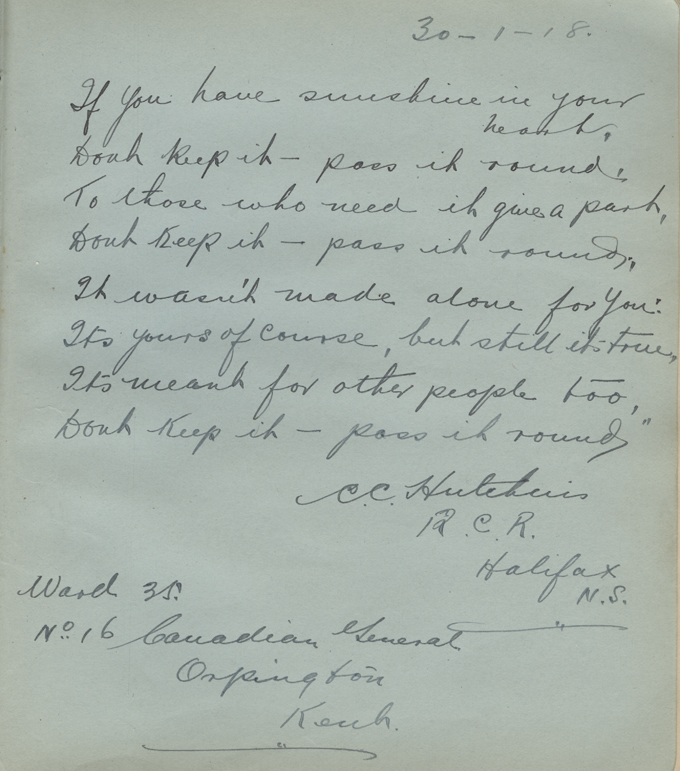 30-1-18.
If you have sunshine in your
heart,
Dont keep it - pass it round,
To those who need it give a part,
Dont keep it - pass it round,
It wasn't made alone for you:
Its yours of course, but still its true,
Its meant for other people too,
Dont keep it - pass it round"
C.C. Hutchins
R.C.R.
Halifax
N.S.
Ward 35.
No. 16 Canadian General
Orpington
Kent.